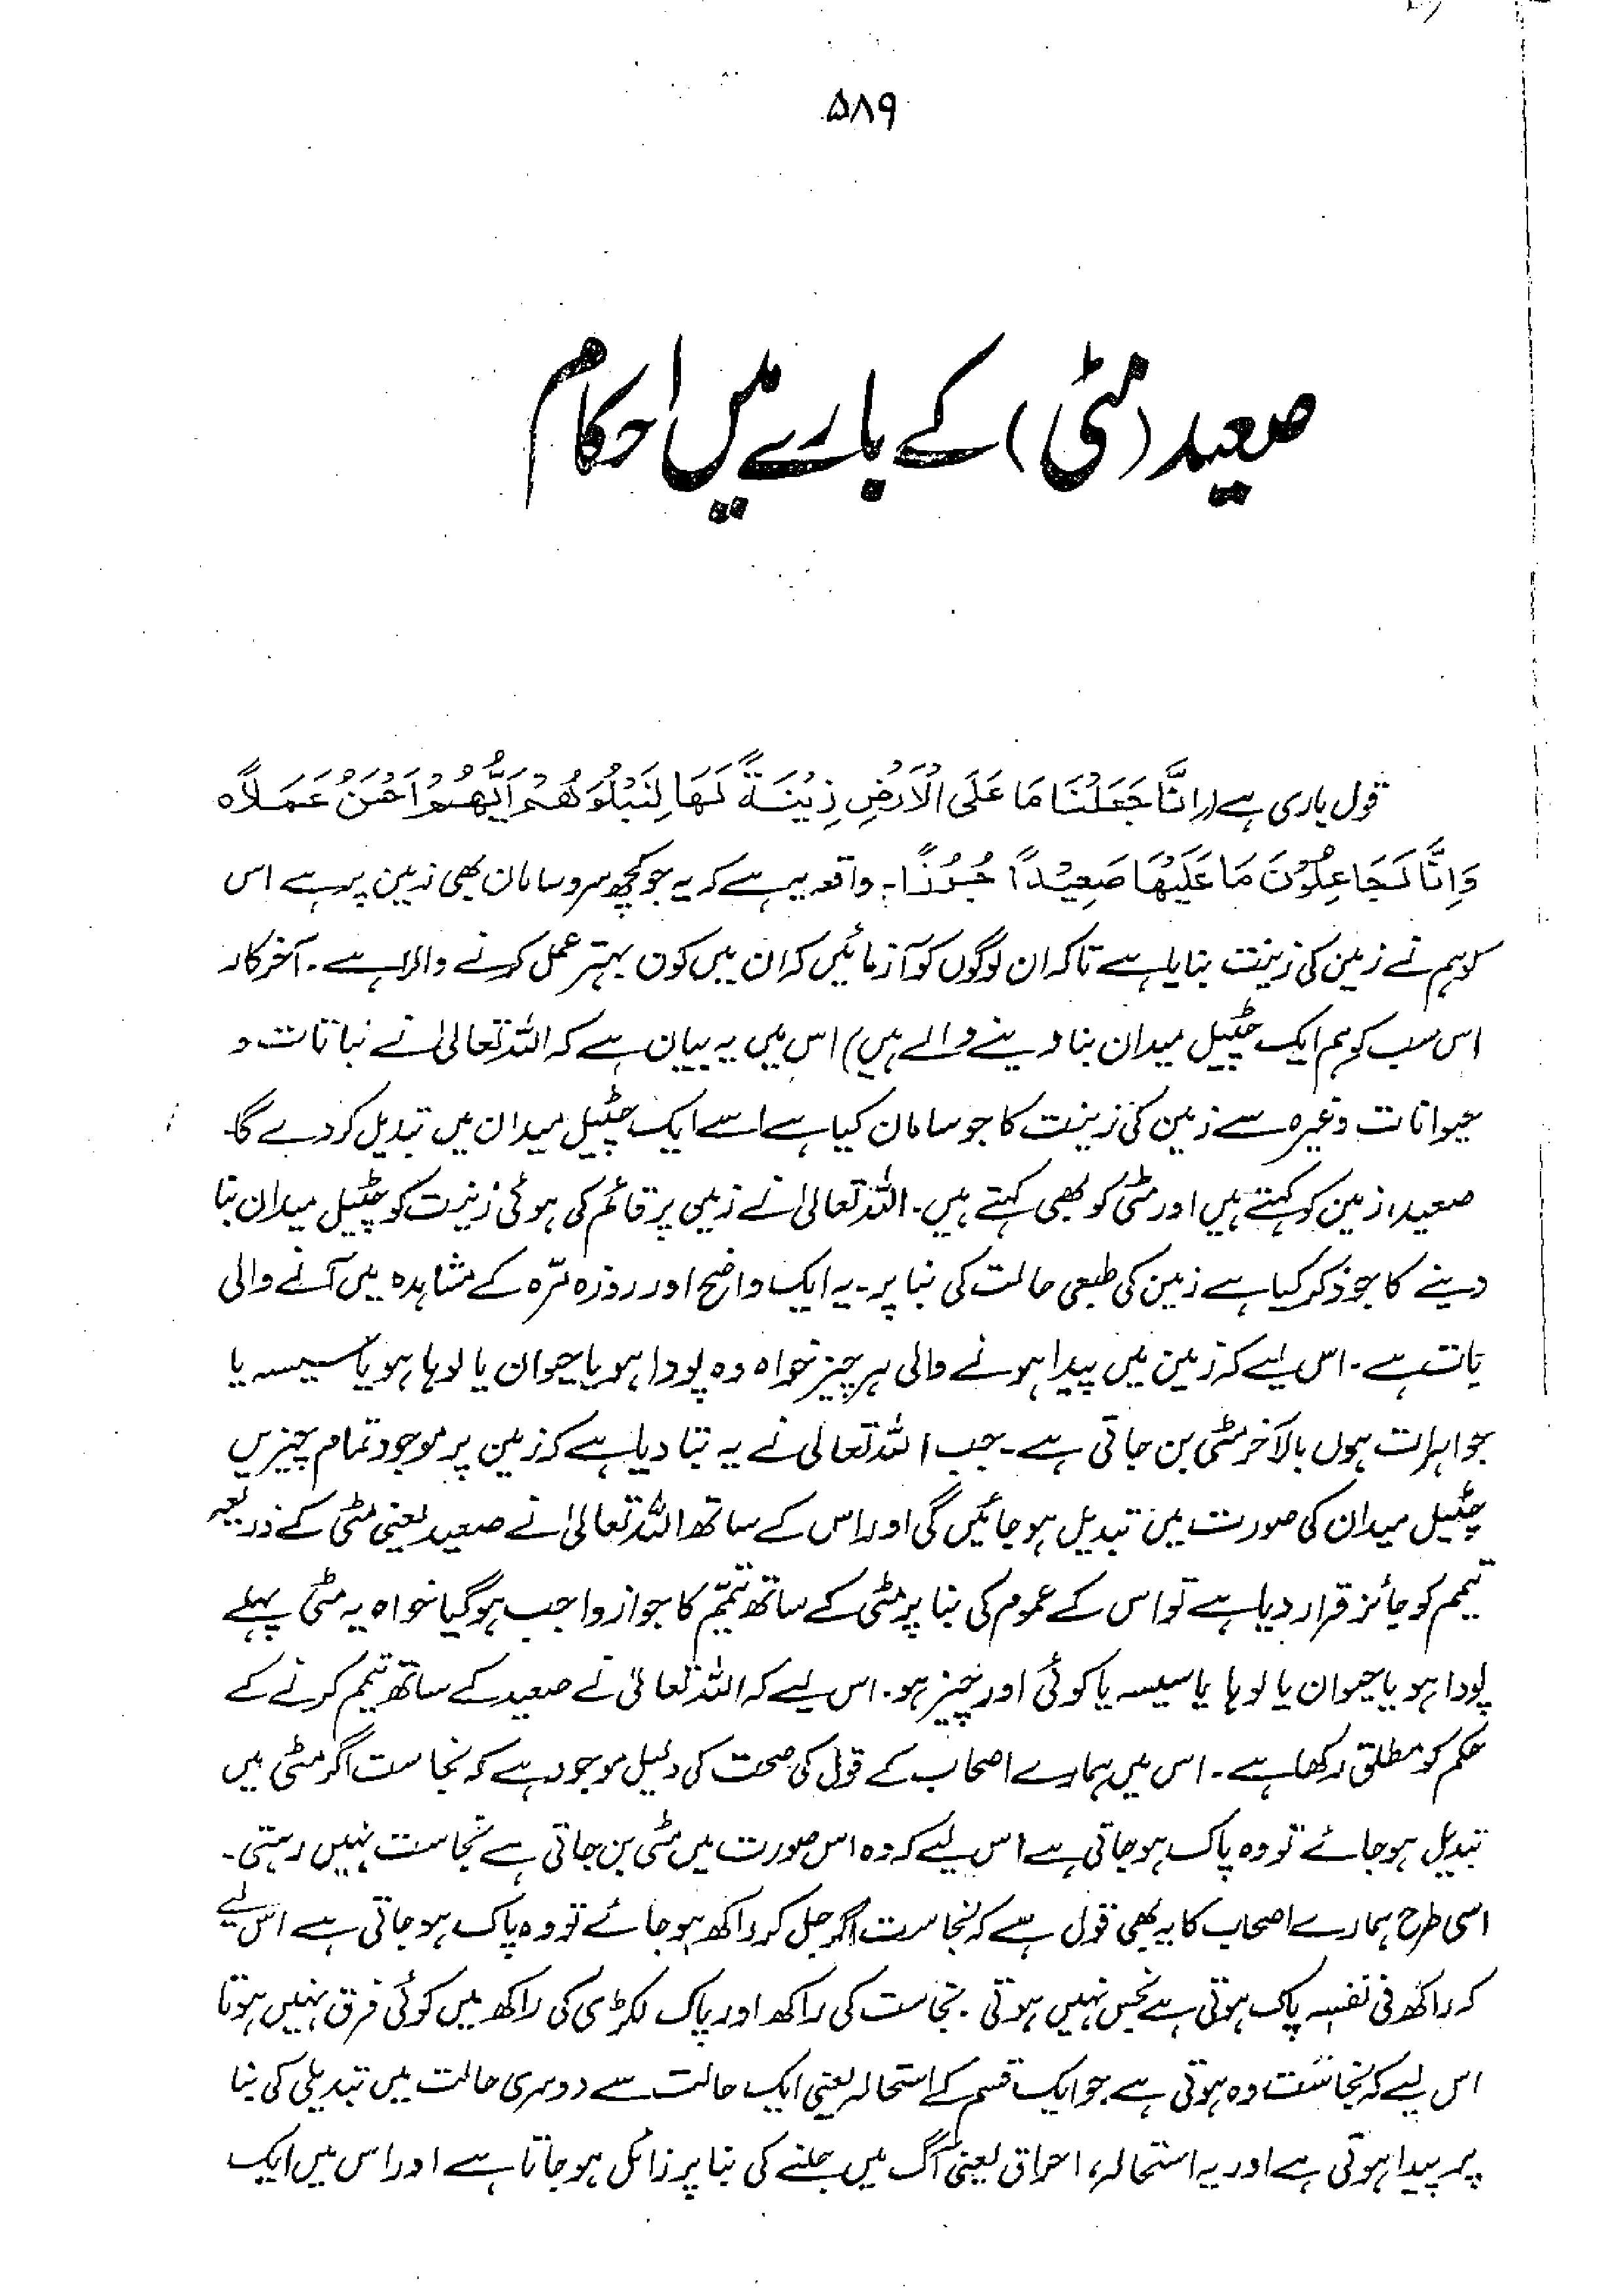 ۵۸۹
صعید (مٹی) کے بارے میں احکام
قول باری ہے (اِنَّا جَعَلْنَا مَا عَلَى الْاَرْضِ زِيْنَةً لَّهَا لِنَبْلُوَهُمْ اَيُّهُمْ اَحْسَنُ عَمَلًاه
وَاِنَّا لَجَاعِلُوْنَ مَا عَلَيْهَا صَعِيْدًا جُرُزًا۔ واقعہ یہ ہے کہ یہ جو کچھ سروسامان بھی زمین پر ہے اس
کو ہم نے زمین کی زینت بنایا ہے تاکہ ان لوگوں کو آزمائیں کہ ان میں کون بہتر عمل کرنے والا ہے۔ آخرکار
اس سب کو ہم ایک چٹیل میدان بنا دینے والے ہیں) اس میں یہ بیان ہے کہ اللہ تعالیٰ نے نباتات و
حیوانات وغیرہ سے زمین کی زینت کا جو سامان کیا ہے اسے ایک چٹیل میدان میں تبدیل کر دے گا۔
صعید، زمین کو کہتے ہیں اور مٹی کو بھی کہتے ہیں۔ اللہ تعالیٰ نے زمین پر قائم کی ہوئی زینت کو چٹیل میدان بنا
دینے کا جو ذکر کیا ہے زمین کی طبعی حالت کی بنا پر۔ یہ ایک واضح اور روزہ مرّہ کے مشاہدہ میں آنے والی
بات ہے۔ اس لیے کہ زمین میں پیدا ہونے والی ہر چیز خواہ وہ پودا ہو یا حیوان یا لوہا ہو یا سیسہ یا
جواہرات ہوں بالآخر مٹی بن جاتی ہے۔ جب اللہ تعالیٰ نے یہ بتا دیا ہے کہ زمین پر موجود تمام چیزیں
چٹیل میدان کی صورت میں تبدیل ہو جائیں گی اور اس کے ساتھ اللہ تعالیٰ نے صعید یعنی مٹی کے ذریعہ
تیمم کو جائز قرار دیا ہے تو اس کے عموم کی بنا پر مٹی کے ساتھ تیمّم کا جواز واجب ہو گیا خواہ یہ مٹی پہلے
پودا ہو یا حیوان یا لوہا یا سیسہ یا کوئی اور چیز ہو۔ اس لیے کہ اللہ تعالیٰ نے صعید کے ساتھ تیمم کرنے کے
حکم کو مطلق رکھا ہے۔ اس میں ہمارے اصحاب کے قول کی صحت کی دلیل موجود ہے کہ نجاست اگر مٹی میں
تبدیل ہو جائے تو وہ پاک ہو جاتی ہے اس لیے کہ وہ اس صورت میں مٹی بن جاتی ہے نجاست نہیں رہتی۔
اسی طرح ہمارے اصحاب کا یہ بھی قول ہے کہ نجاست اگر جل کر راکھ ہو جائے تو وہ پاک ہو جاتی ہے اس لیے
کہ راکھ فی نفسہ پاک ہوتی ہے نجس نہیں ہوتی۔ نجاست کی راکھ اور پاک لکڑی کی راکھ میں کوئی فرق نہیں ہوتا
اس لیے کہ نجاست وہ ہوتی ہے جو ایک قسم کے استحالہ یعنی ایک حالت سے دوسری حالت میں تبدیلی کی بنا
پر پیدا ہوتی ہے اور یہ استحالہ، احراق یعنی آگ میں جلنے کی بنا پر زائل ہو جاتا ہے اور اس میں ایک